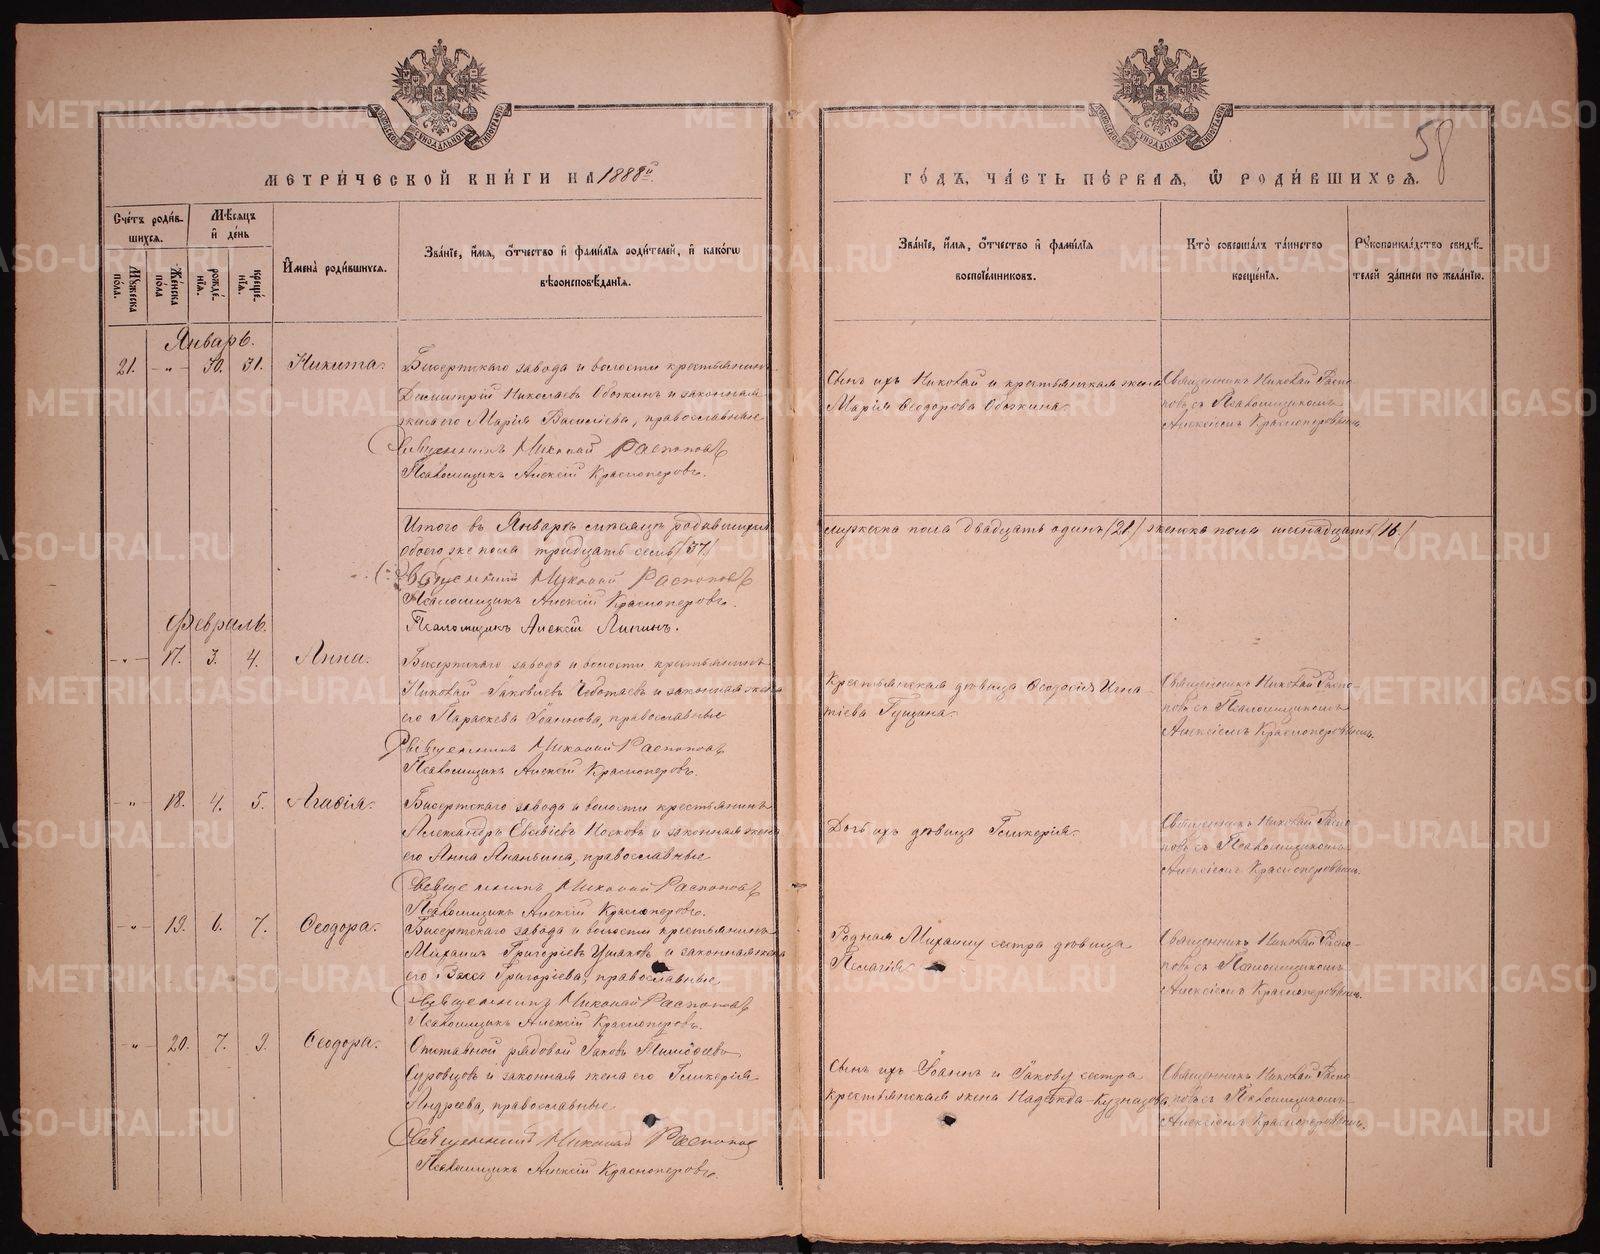 МЕТРИЧЕСКОЙ КНИГИ НА 1888й
ГОДЪ, ЧАСТЬ ПЕРВАЯ, Ѡ РОДИВШИХСЯ.
58
Счетъ родив-
шихся.
Мѣсяцъ
и день
Мужеска
пола.
Женска
пола
рожде-
нія.
креще-
нія.
Имена родившихся.
Званіе, имя, отчество и фамилія родителей, и какогѡ
вѣроисповѣданія.
Званіе, имя, отчество и фамилія
воспріемниковъ.
Кто совершалъ таинство
крещенія.
Рукоприкладство свидѣ-
телей записи по желанію.
Январь.
21. - " - 30. 31. Никита.
Бисертскаго завода и волости крестьянинъ
Димитрій Николаевъ и законная
жена его Марія Васильева, православные
Священникъ Николай Распоповъ
Псаломщикъ Алексій Красноперовъ.
Сынъ ихъ Николай и крестьянская жена
Марія Ѳеодорова
Священникъ Николай Распо-
повъ съ Псаломщикомъ
Алексіемъ Красноперовымъ
Итого въ Январѣ мѣсяцѣ родившихся
мужеска пола двадцать одинъ /21/ женска пола шестнадцать /16/
обоего же пола тридцать семь /37/
Священникъ Николай Распоповъ
Псаломщикъ Алексій Красноперовъ.
Псаломщикъ Алексій
Февраль.
- " - 17. 3. 4. Анна.
Бисертскаго завода и волости крестьянинъ
Николай Іаковлевъ и законная жена
его Параскева Іоаннова, православные
Священникъ Николай Распоповъ
Псаломщикъ Алексій Красноперовъ.
Крестьянская дѣвица Ѳеодосія Игна-
тіева Гущина.
Священникъ Николай Распо-
повъ съ Псаломщикомъ
Алексіемъ Красноперовымъ.
- " - 18. 4. 5. Агаѳія.
Бисертскаго завода и волости крестьянинъ
Александръ Евсевіевъ Носковъ и законная жена
его Анна Ананьина, православные
Священникъ Николай Распоповъ
Псаломщикъ Алексій Красноперовъ.
Дочь ихъ дѣвица Гликерія.
Священникъ Николай Распо-
повъ съ Псаломщикомъ
Алексіемъ Красноперовымъ.
- " - 19. 6. 7. Ѳеодора.
Бисертскаго завода и волости крестьянинъ
Михаилъ Григоріевъ Ушаковъ и законная жена
его Васса Григоріева, православные
Священникъ Николай Распоповъ
Псаломщикъ Алексій Красноперовъ.
Родная Михаилу сестра дѣвица
Пелагія
Священникъ Николай Распо-
повъ съ Псаломщикомъ
Алексіемъ Красноперовымъ.
- " - 20. 7. 9. Ѳеодора.
Отставной рядовой Іаковъ Тимоѳеевъ
Суровцовъ и законная жена его Гликерія
Андреева, православные
Священникъ Николай Распоповъ
Псаломщикъ Алексій Красноперовъ.
Сынъ ихъ Іоаннъ и Іакову сестра
крестьянская жена Надежда Кузнецова
Священникъ Николай Распо-
повъ съ Псаломщикомъ
Алексіемъ Красноперовымъ.
METRIKI.GASO-URAL.RU